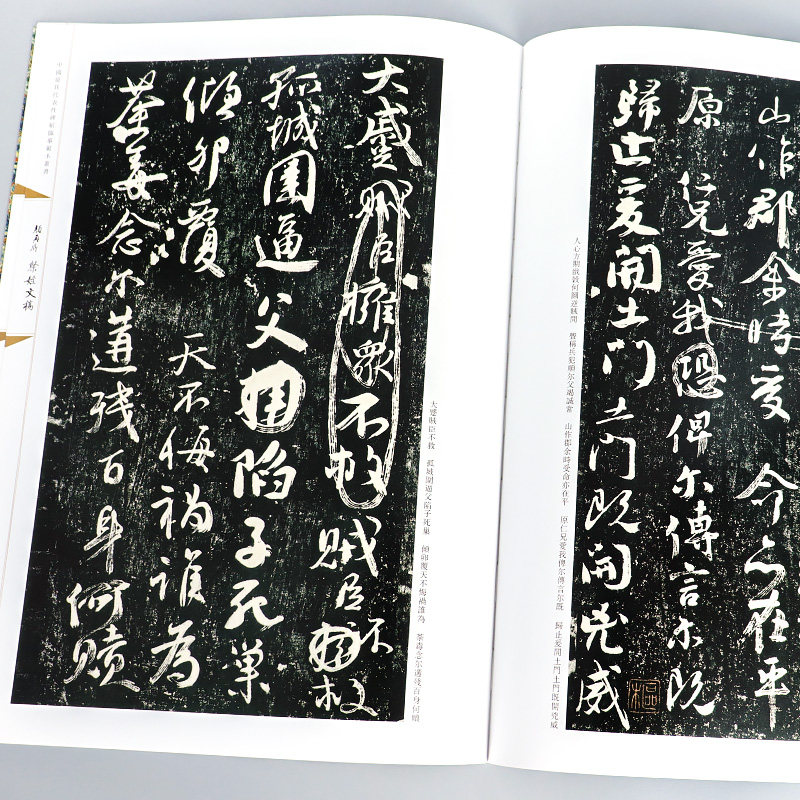 山作郡余時受命亦在平
原仁兄愛我恐俾尔傳言尔既
歸止爰開土門土門既開兇威
人心方期戩穀何圖逆賊間 釁稱兵犯順尔父竭誠常 山作郡余時受命亦在平 原仁兄愛我俾尔傳言尔既 歸止爰開土門土門既開兇威
大蹙賊臣擁衆不救賊臣不救
孤城圍逼父陷子死巢
傾卵覆天不悔禍誰為
荼毒念尔遘殘百身何贖
大蹙賊臣不救 孤城圍逼父陷子死巢 傾卵覆天不悔禍誰為 荼毒念尔遘殘百身何贖
中國最具代表性碑帖臨摹範本叢書
顏真卿 祭姪文稿